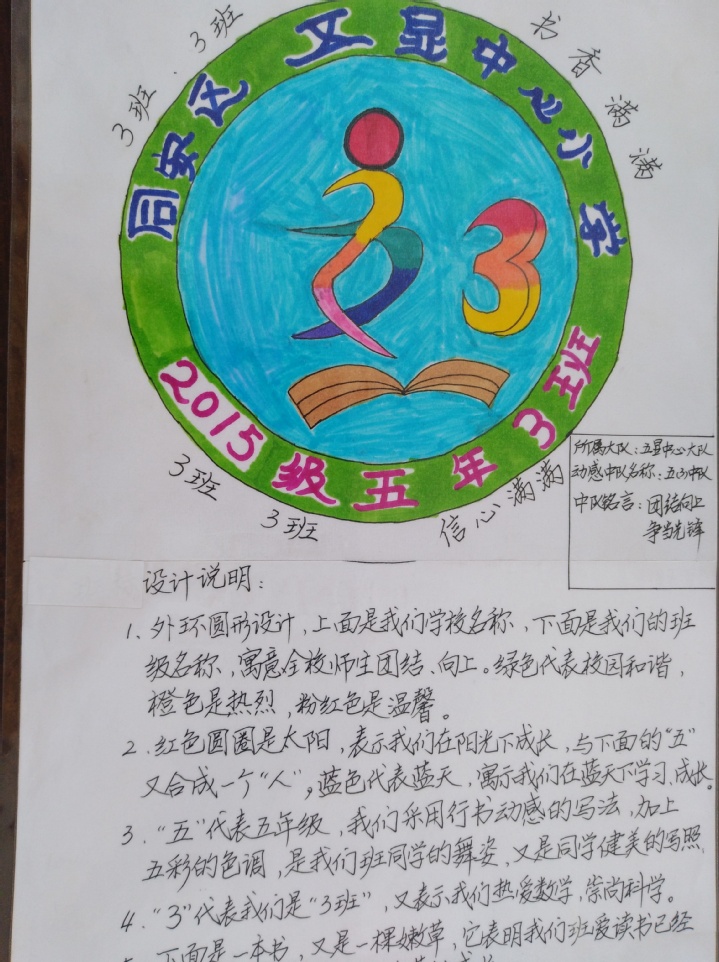 3班 · 3班
书香满满
同安区 五显中心小学
3
2015级五年3班
3班
3班
信心满满
所属大队：五显中心大队
动感中队名称：五(3)中队
中队铭言：团结向上
争当先锋
设计说明：
1、外环圆形设计，上面是我们学校名称，下面是我们的班
级名称，寓意全校师生团结、向上。绿色代表校园和谐，
橙色是热烈，粉红色是温馨。
2、红色圆圈是太阳，表示我们在阳光下成长，与下面的“五”
又合成一个“人”，蓝色代表蓝天，寓示我们在蓝天下学习、成长。
3、“五”代表五年级，我们采用行书动感的写法，加上
五彩的色调，是我们班同学的舞姿，又是同学健美的写照
4、“3”代表我们是“3班”，又表示我们热爱数学，崇尚科学。
下面是一本书，又是一棵嫩草，它表明我们班爱读书已经